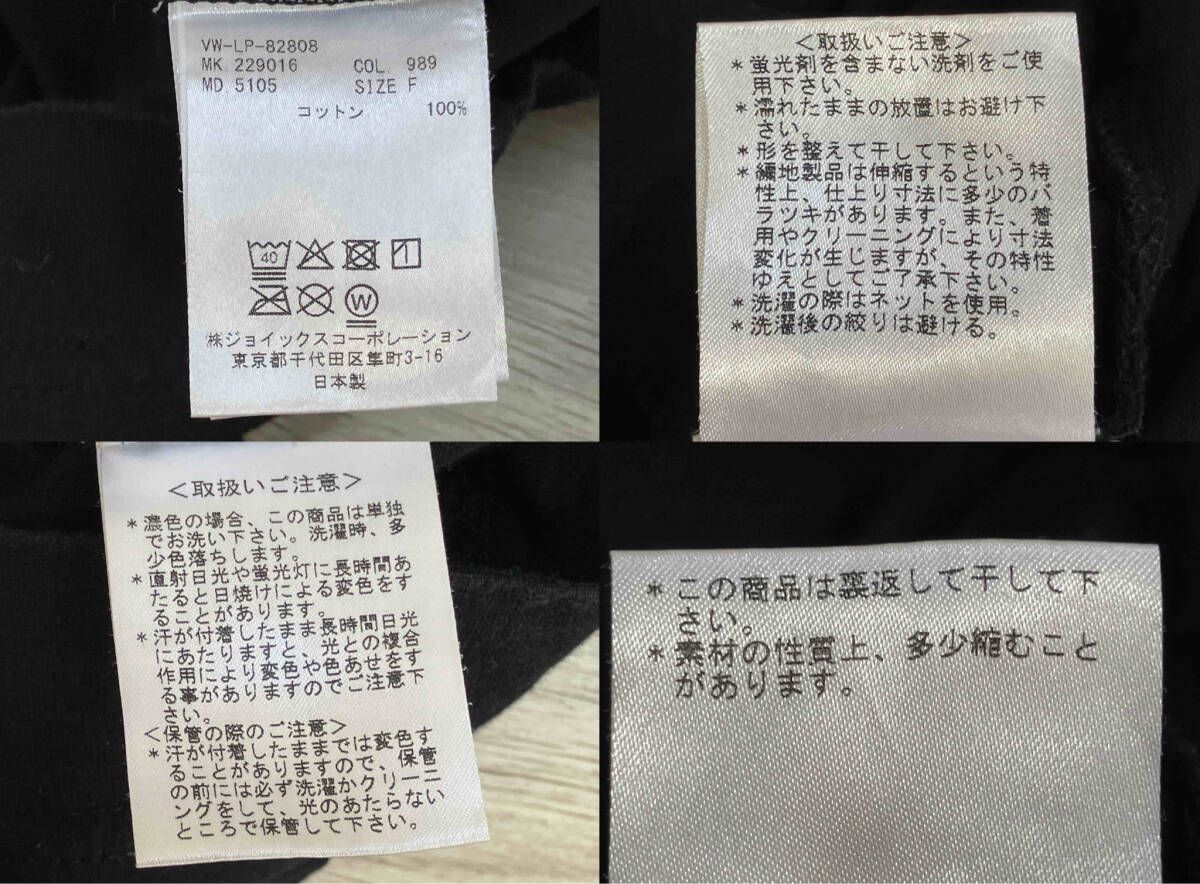 VW-LP-82808
MK. 229016 COL. 989
MD. 5105 SIZE F
コットン 100%
40
W
㈱ジョイックスコーポレーション
東京都千代田区隼町3-16
日本製
＜取扱いご注意＞
*蛍光剤を含まない洗剤をご使
用下さい。
*濡れたままの放置はお避け下
さい。
*形を整えて干して下さい。
*編地製品は伸縮するという特
性上、仕上り寸法に多少のバ
ラツキがあります。また、着
用やクリーニングにより寸法
変化が生じますが、その特性
ゆえとしてご了承下さい。
*洗濯の際はネットを使用。
*洗濯後の絞りは避ける。
＜取扱いご注意＞
*濃色の場合、この商品は単独
でお洗い下さい。洗濯時、多
少色落ちします。
*直射日光や蛍光灯に長時間あ
たると日焼けによる変色をす
ることがあります。
*汗が付着したまま長時間日光
にあたりますと、光との複合
作用により変色や色あせをす
る事がありますのでご注意下
さい。
＜保管の際のご注意＞
*汗が付着したままでは変色す
ることがありますので、保管
の前には必ず洗濯かクリーニ
ングをして、光のあたらない
ところで保管して下さい。
*この商品は裏返して干して下
さい。
*素材の性質上、多少縮むこと
があります。